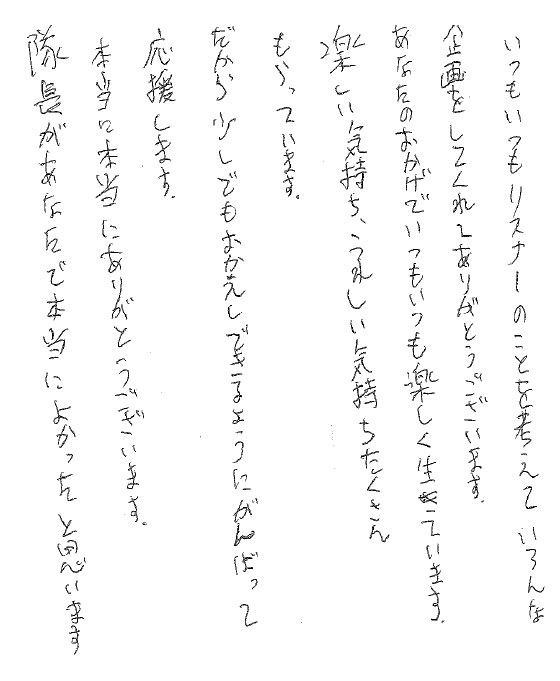 いつもいつもリスナーのことを考えていろんな
企画をしてくれてありがとうございます。
あなたのおかげでいつもいつも楽しく生きています。
楽しい気持ち、うれしい気持ちたくさん
もらっています。
だから少しでもおかえしできるようにがんばって
応援します。
本当に本当にありがとうございます。
隊長があなたで本当によかったと思います